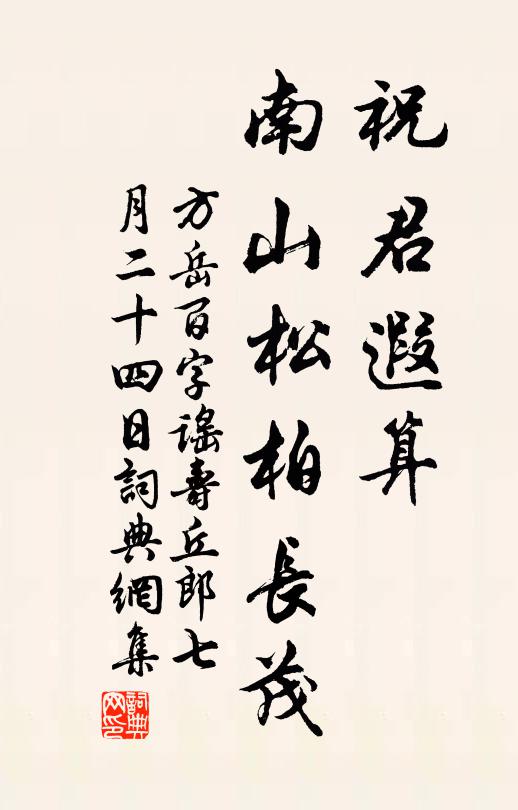 祝君遐算
南山松柏長茂
方岳百字謠壽丘郎七
月二十四日詞典網集
詞典网印